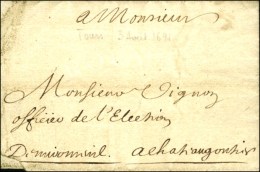 a Monsieur
Tours 3 Avril 1691
Monsieur Vignon
officier de l'Election
a chateaugontier